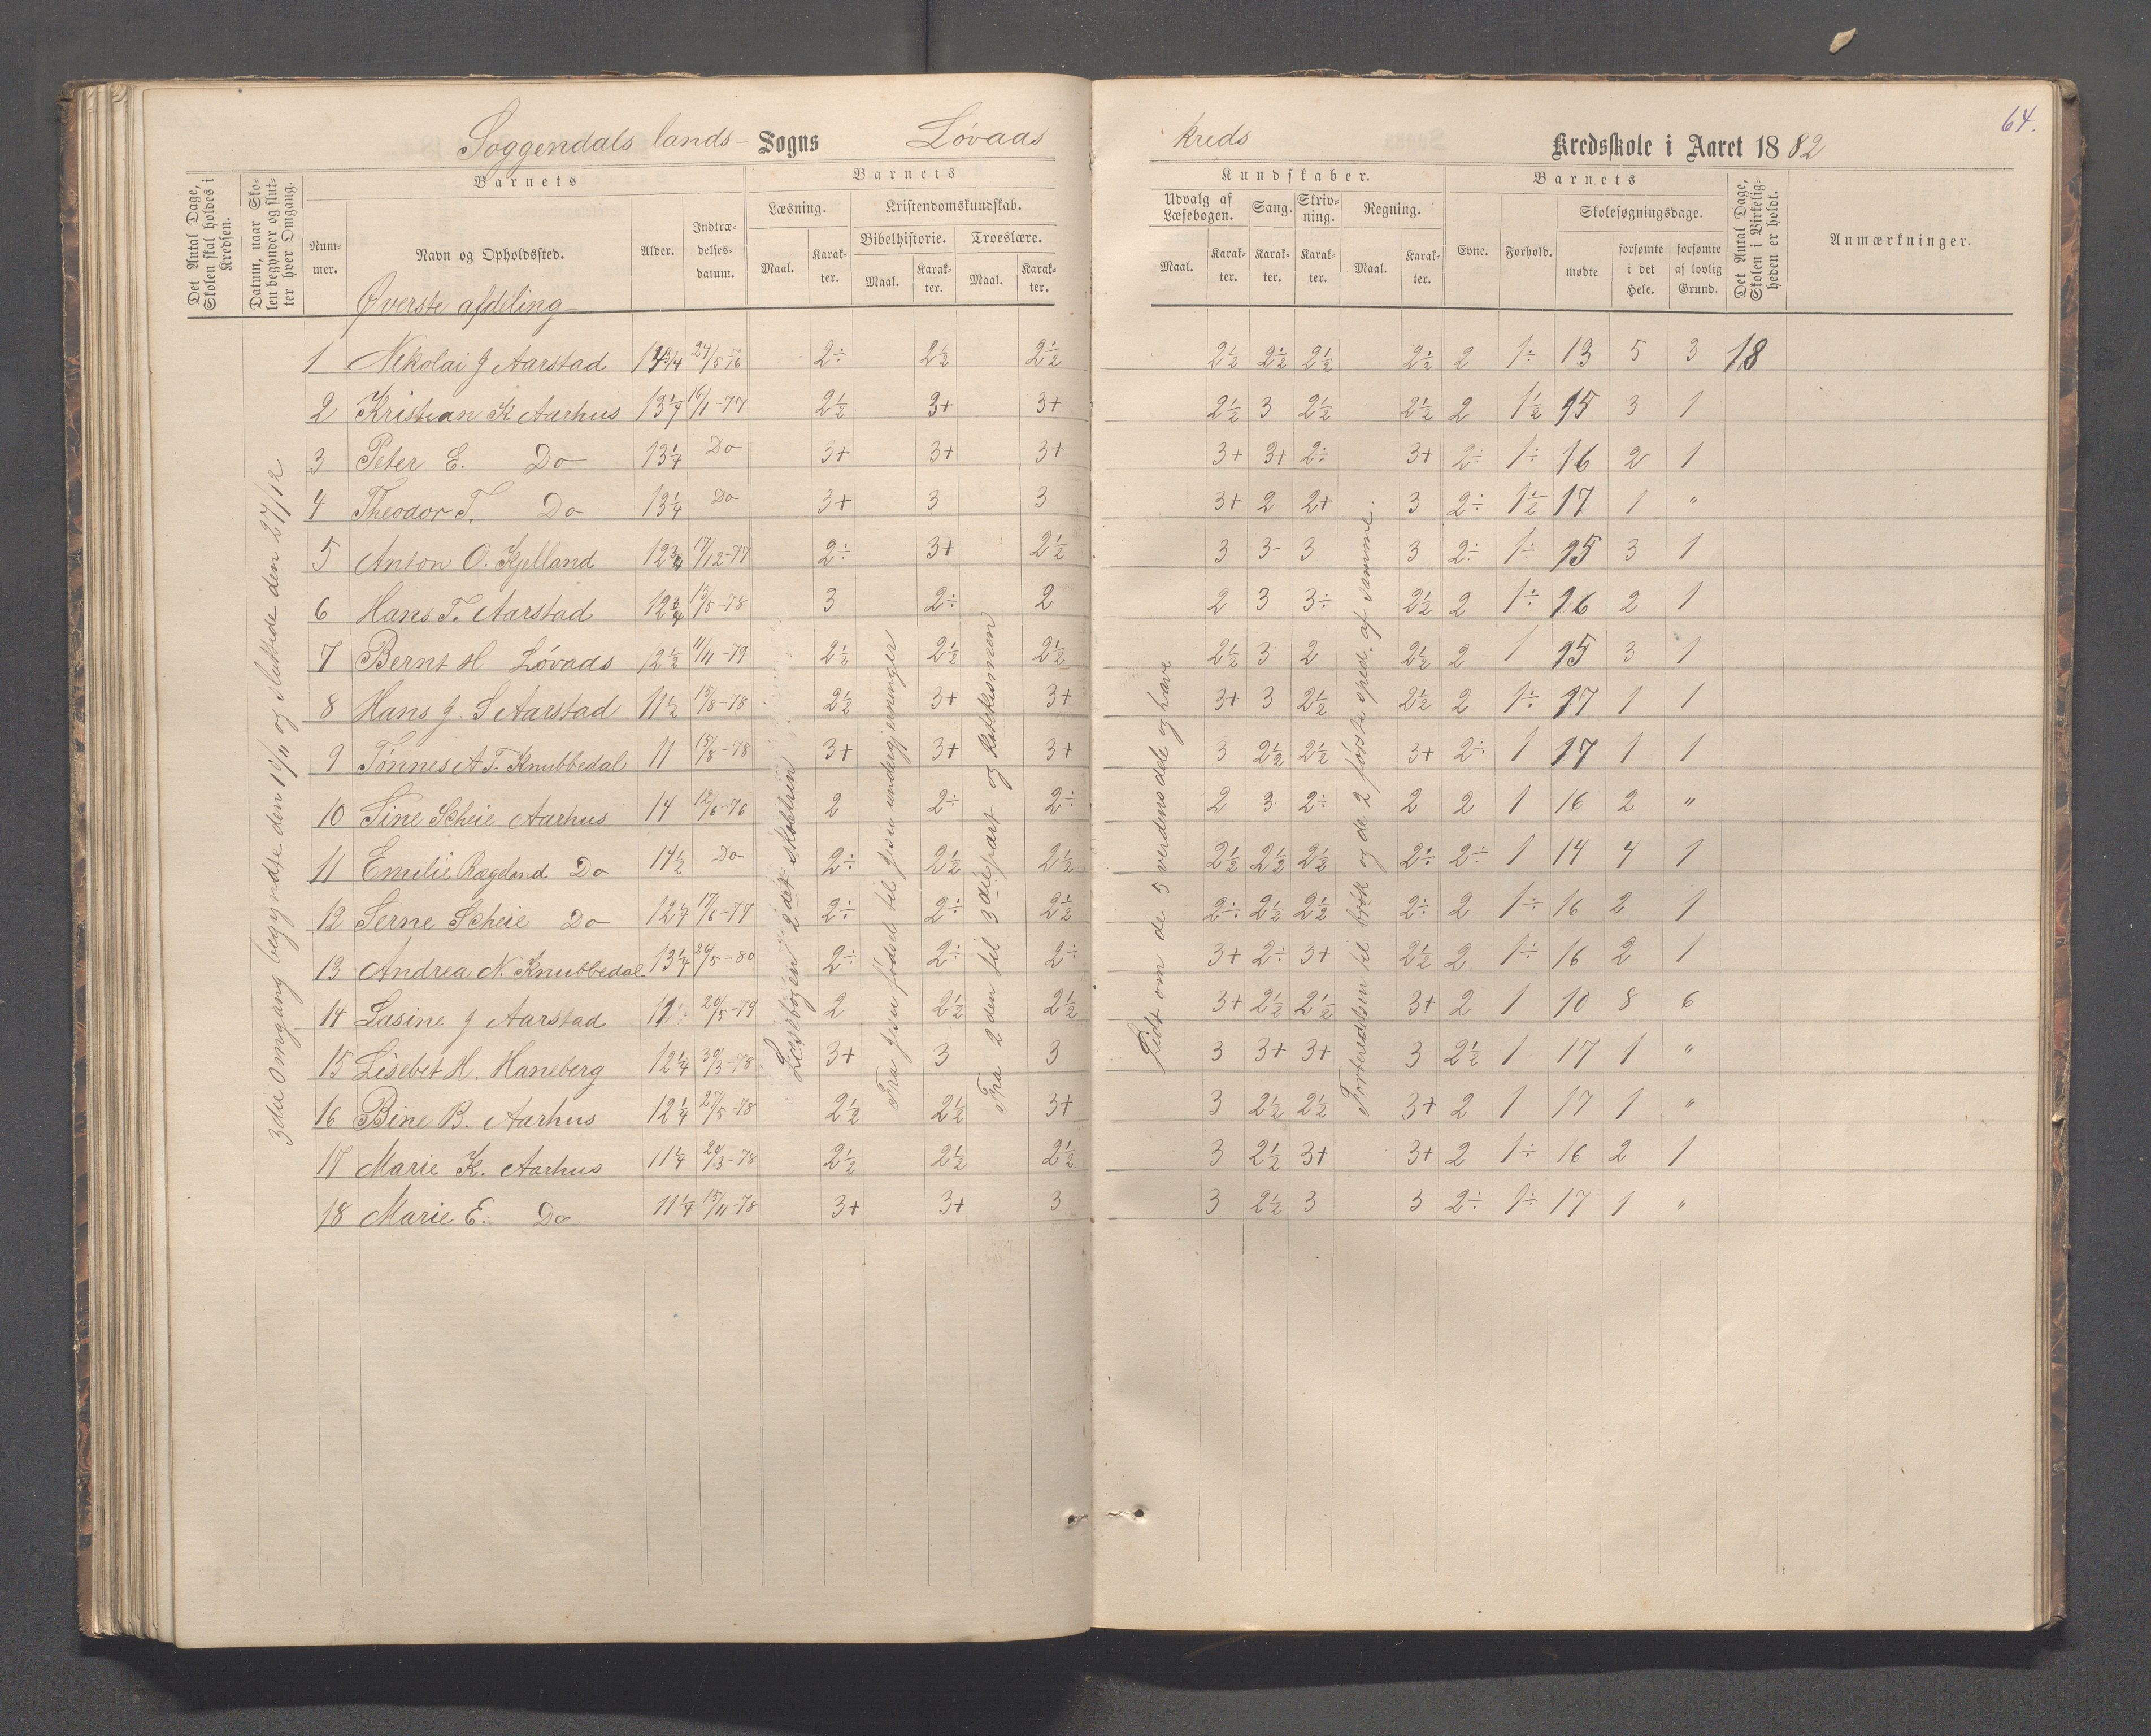 64.
Soggendals lands- Sogns Løvaas kreds Kredsskole i Aaret 1882
Det Antal Dage, Skolen skal holdes i Kredsen.
Datum, naar Skolen begynder og slutter hver Omgang.
Barnets
Nummer.
Navn og Opholdssted.
Alder.
Indtrædelsesdatum.
Barnets
Læsning.
Maal.
Karakter.
Kristendomskundskab.
Bibelhistorie.
Maal.
Karakter.
Troeslære.
Maal.
Karakter.
Kundskaber.
Udvalg af Læsebogen.
Maal.
Karakter.
Sang.
Karakter.
Skrivning.
Karakter.
Regning.
Maal.
Karakter.
Barnets
Evne.
Forhold.
Skolesøgningsdage.
mødte
forsømte i det Hele.
forsømte af lovlig Grund.
Det Antal Dage, Skolen i Virkeligheden er holdt.
Anmærkninger.
Øverste afdeling
1 Nikolai J Aarstad 24/5-76 2÷ 2½ 2½ 2½ 2½ 2½ 2½ 2 1÷ 13 5 3 18
2 Kristian K Aarhus 13¼ 16/1-77 2½ 3+ 3+ 2½ 3 2½ 2½ 2 1½ 15 3 1
3 Peter E. Do 13¼ Do 3+ 3+ 3+ 3+ 3+ 2÷ 3+ 2÷ 1÷ 16 2 1
4 Theodor T. Do 13¼ Do 3+ 3 3 3+ 2 2+ 3 2÷ 1½ 17 1 "
5 Anton O. Kjelland 12¾ 17/12-77 2÷ 3+ 2½ 3 3- 3 3 2÷ 1÷ 15 3 1
6 Hans T. Aarstad 12¾ 15/5-78 3 2÷ 2 2 3 3÷ 2½ 2 1÷ 16 2 1
7 Bernt H Løvaas 12½ 11/11-79 2½ 2½ 2½ 2½ 3 2 2½ 2 1 15 3 1
8 Hans J. S Aarstad 11½ 15/8-78 2½ 3+ 3+ 3+ 3 2½ 2½ 2 1÷ 17 1 1
9 Tønnes A T. Knubbedal 11 15/8-78 3+ 3+ 3+ 3 2½ 2½ 3+ 2÷ 1 17 1 1
10 Sine Scheie Aarhus 14 12/6-76 2 2÷ 2÷ 2 3 2÷ 2 2 1 16 2 "
11 Emilie Rægeland Do 14½ Do 2÷ 2½ 2½ 2½ 2½ 2½ 2÷ 2÷ 1 14 4 1
12 Serne Scheie Do 12¼ 17/6-77 2÷ 2÷ 2½ 2÷ 2½ 2½ 2÷ 2 1÷ 16 2 1
13 Andrea N. Knubbedal 13¼ 26/5-80 2÷ 2÷ 2÷ 3+ 2÷ 3+ 2½ 2 1÷ 16 2 1
14 Lasine J Aarstad 11 20/5-79 2 2½ 2½ 3+ 2½ 2½ 3+ 2 1 10 8 6
15 Lisebet H. Haneberg 12¼ 30/3-78 3+ 3 3 3 3+ 3+ 3 2½ 1 17 1 "
16 Bine B. Aarhus 12¼ 27/5-78 2½ 2½ 3+ 3 2½ 2½ 3+ 2 1 17 1 "
17 Marie K. Aarhus 11¼ 20/3-78 2½ 2½ 2½ 3 2½ 3+ 3+ 2 1÷ 16 2 1
18 Marie E. Do 11¼ 15/11-78 3+ 3+ 3 3 2½ 3 3 2÷ 1÷ 17 1 "
3die Omgang begyndte den og sluttede den 27/12
Læsebogen 2det skoletrin
Fra Jesu fødsel til Jesu undergjerninger
Fra 2den til 3die part og Katekismen
Lidt om de 5 verdensdele og have
Forberedelsen til brøk og de 2 første sped. af samme.